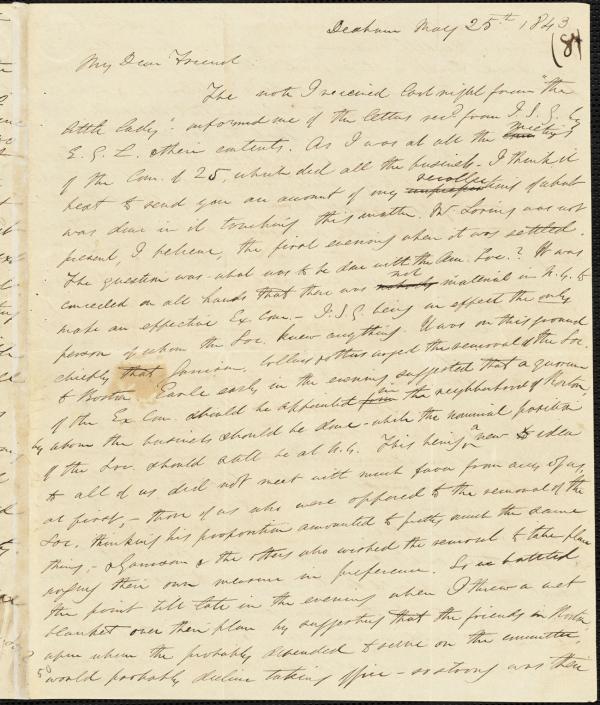 Dedham May 25th 1843
(8)
My Dear Friend
The note I received last night from "the
little lady" informed me of the letters recd from J. S. G. by
E. G. L. & their contents. As I was at all the meetings
of the Com. of 25, which did all the business - I think it
best to send you an account of my recollections of what
was done in it touching this matter. Mr. Loring was not
present, I believe, the first evening when it was settled.
The question was - what was to be done with the Am. Soc.? It was
conceded on all hands that there was not material in N.Y. to
make an effective Ex Com. - J. S. G. being in effect the only
person of whom the Soc. knew anything. It was on this ground
chiefly that Garrison, Collins & others urged the removal of the Soc.
to Boston. Earle early in the evening suggested that a quorum
of the Ex Com. should be appointed in the neighborhood of Boston,
by whom the business should be done - while the nominal position
of the Soc. should still be at N.Y. This being a new idea
to all of us did not meet with much favor from any of us,
at first, - those of us who were opposed to the removal of the
Soc. thinking his proposition amounted to pretty much the same
thing, - & Garrison & the others who wished the removal to take place
urging their own measure in preference. So we battled
the point till late in the evening when I threw a wet
blanket over their plan by suggesting that the friends in Boston
upon whom they probably depended to serve on the committee,
would probably decline taking office - so strong was their